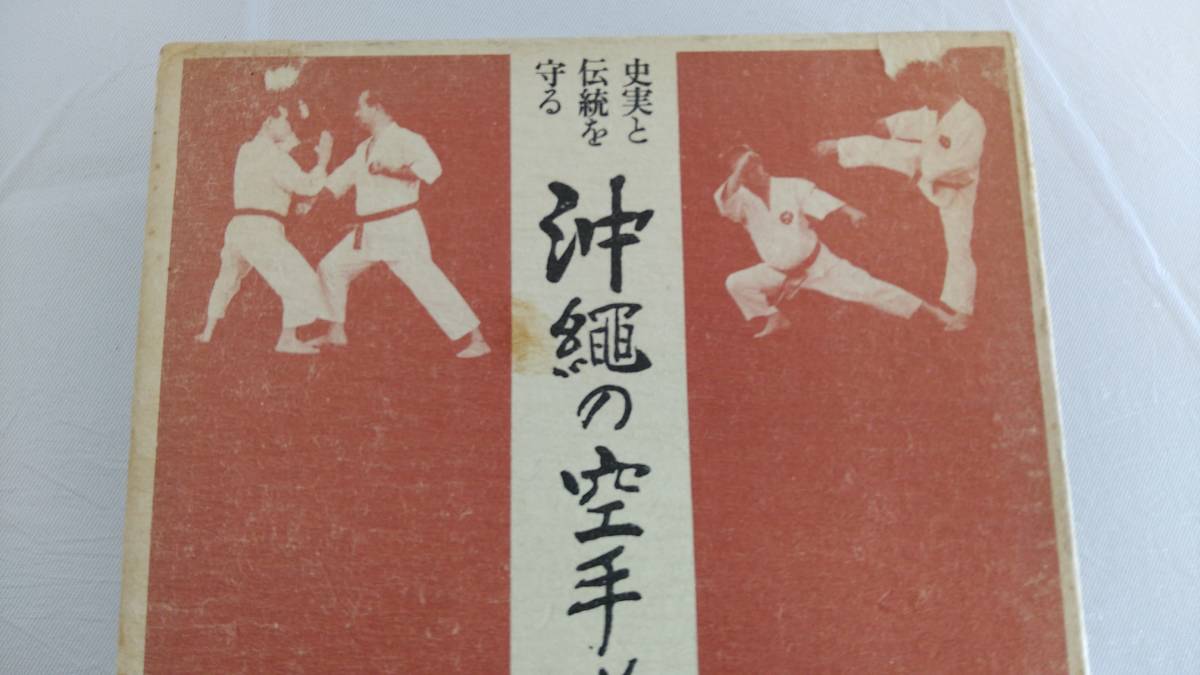 史実と
伝統を
守る
沖繩の空手